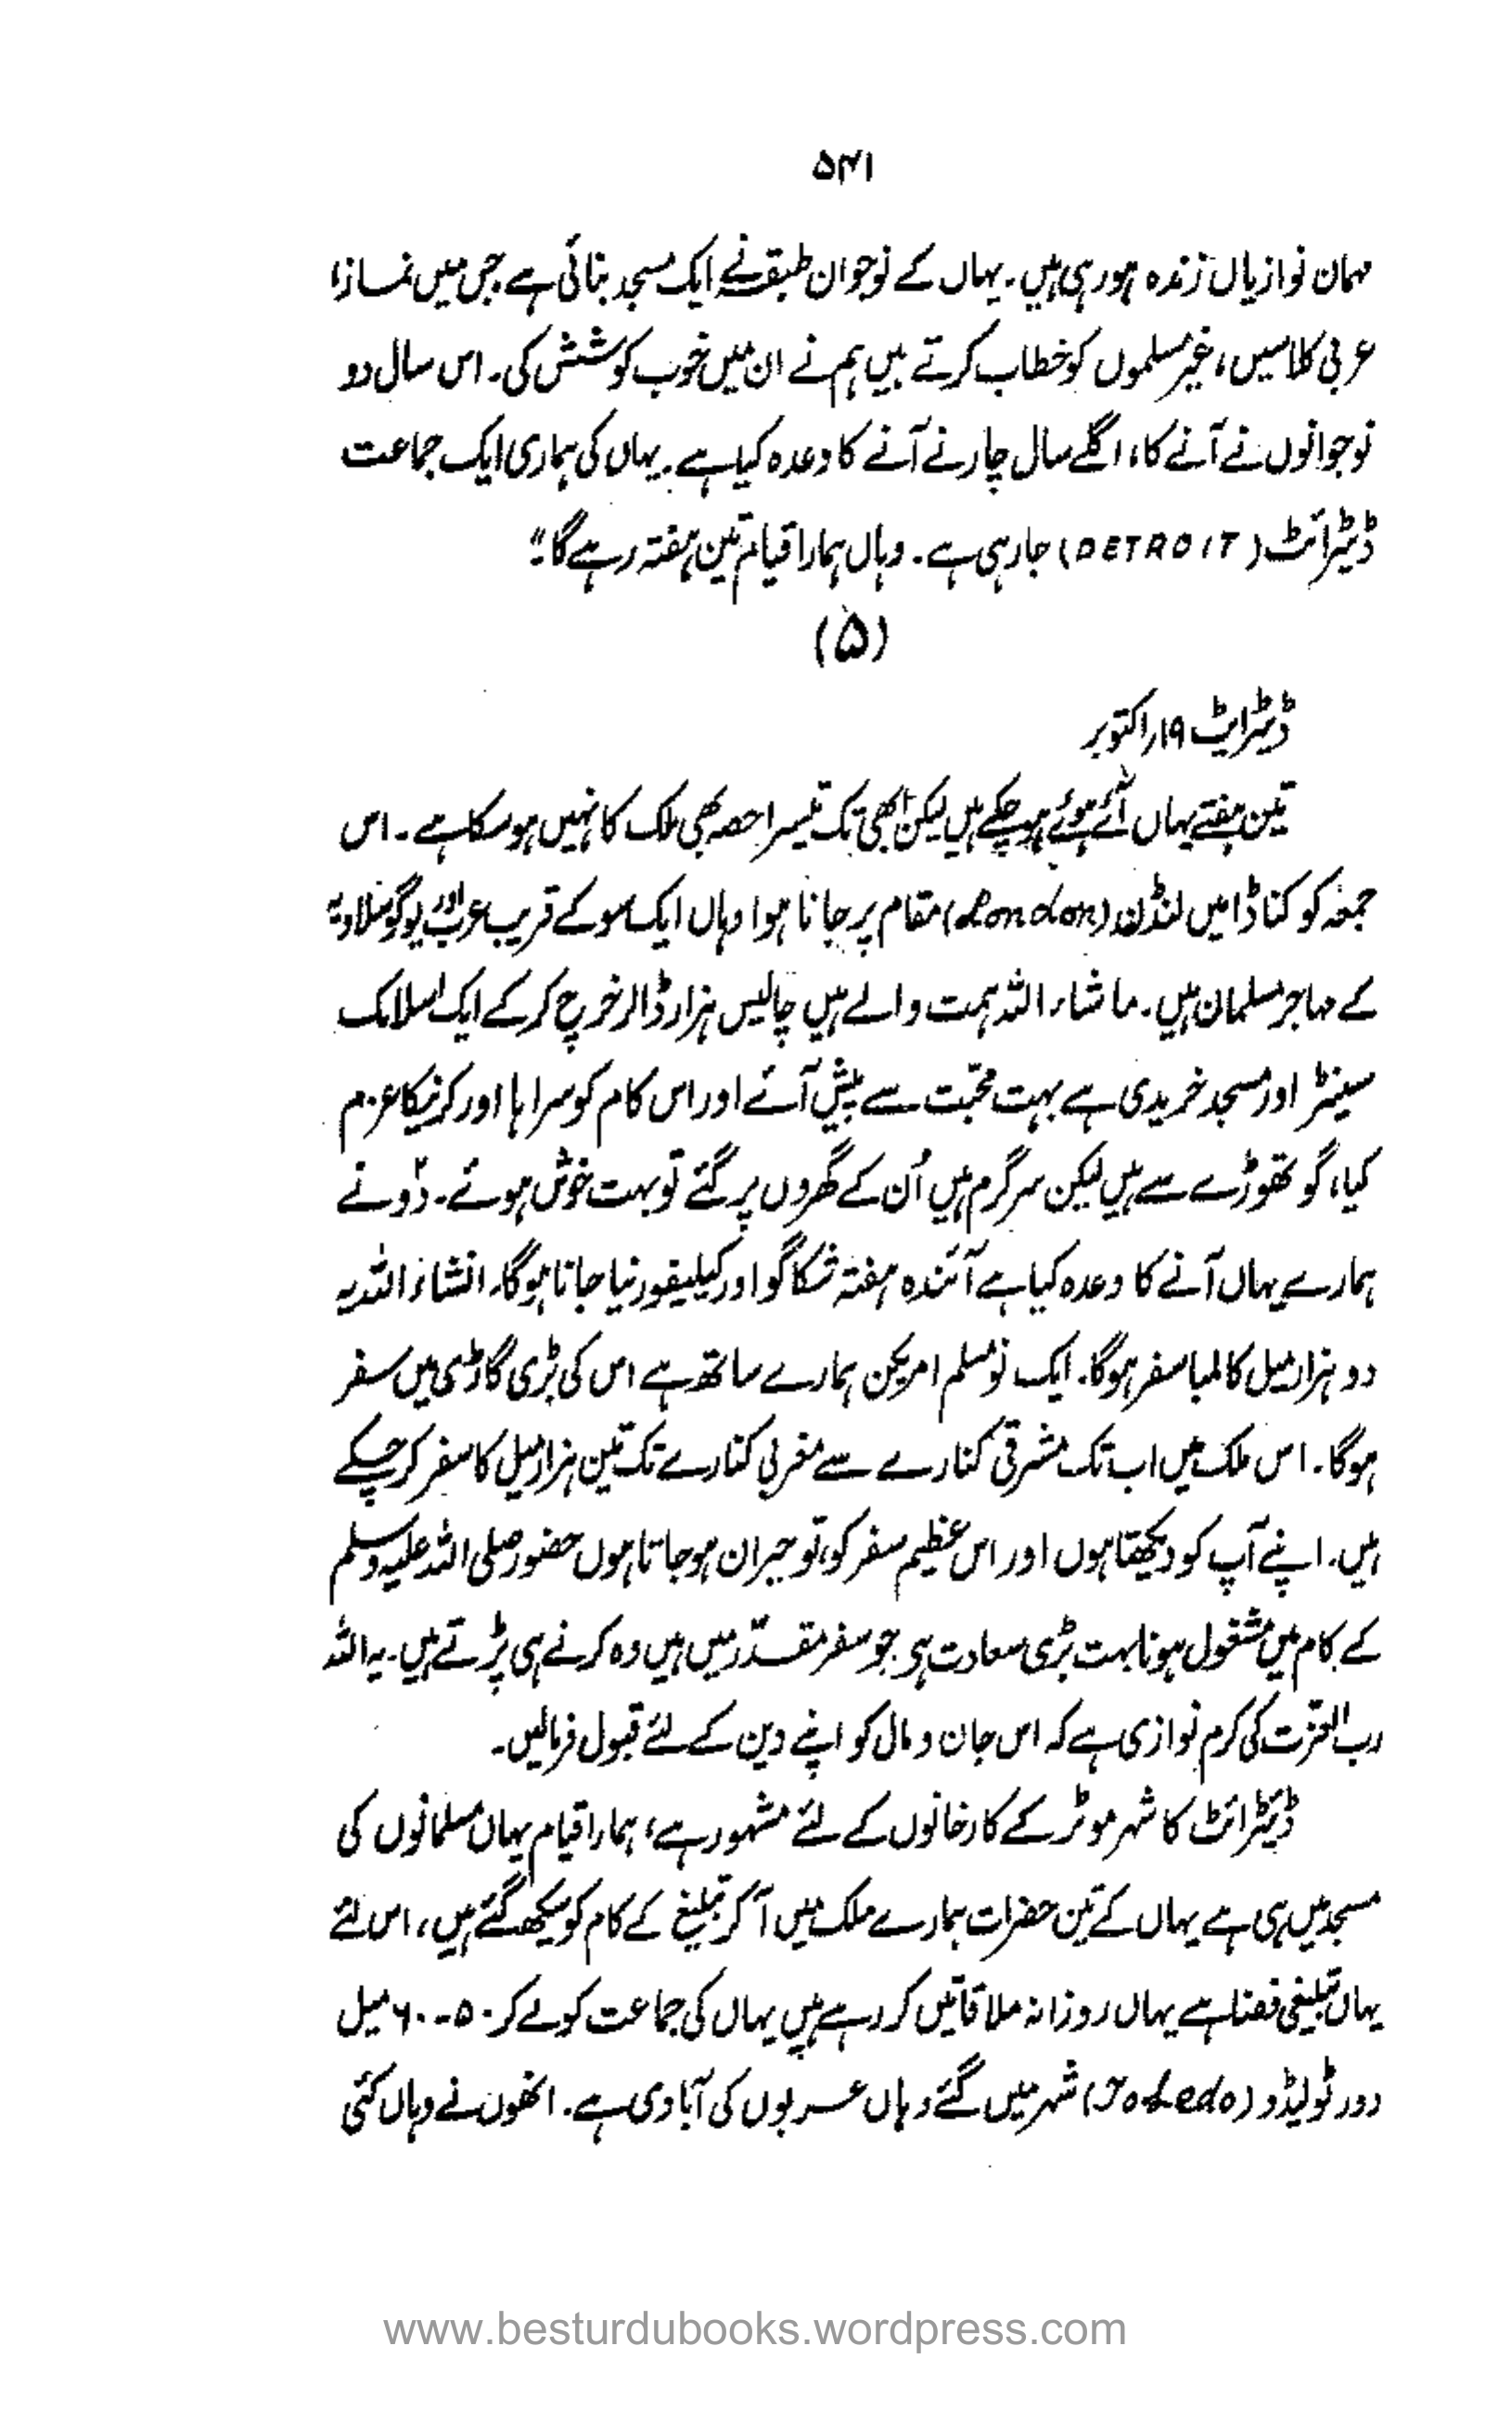 ۵۴۱
مہمان نوازیاں زندہ ہو رہی ہیں۔ یہاں کے نوجوان طبقہ نے ایک مسجد بنائی ہے جس میں نماز،
عربی کلاسیں، غیر مسلموں کو خطاب کرتے ہیں ہم نے ان میں خوب کوشش کی۔ اس سال دو
نوجوانوں نے آنے کا، اگلے سال چار نے آنے کا وعدہ کیا ہے۔ یہاں کی ہماری ایک جماعت
ڈیٹرائٹ (DETROIT) جا رہی ہے۔ وہاں ہمارا قیام تین ہفتہ رہے گا۔"
(۵)
ڈیٹرایٹ ۱۹ر اکتوبر
تین ہفتے یہاں آئے ہوئے ہو چکے ہیں لیکن ابھی تک تیسرا حصہ بھی ملک کا نہیں ہو سکا ہے۔ اس
جمعہ کو کناڈا میں لنڈن (London) مقام پر جانا ہوا وہاں ایک سو کے قریب عرب اور یوگوسلاویہ
کے مہاجر مسلمان ہیں۔ ماشاء اللہ ہمت والے ہیں چالیس ہزار ڈالر خرچ کر کے ایک اسلامک
سینٹر اور مسجد خریدی ہے بہت محبّت سے پیش آئے اور اس کام کو سراہا اور کرنیکا عزم
کیا، گو تھوڑے سے ہیں لیکن سرگرم ہیں اُن کے گھروں پر گئے تو بہت خوش ہوئے۔ دو نے
ہمارے یہاں آنے کا وعدہ کیا ہے آئندہ ہفتہ شکاگو اور کیلیفورنیا جانا ہوگا۔ انشاء اللہ یہ
دو ہزار میل کا لمبا سفر ہوگا۔ ایک نو مسلم امریکن ہمارے ساتھ ہے اس کی بڑی گاڑی میں سفر
ہوگا۔ اس ملک میں اب تک مشرقی کنارے سے مغربی کنارے تک تین ہزار میل کا سفر کر چکے
ہیں۔ اپنے آپ کو دیکھتا ہوں اور اس عظیم سفر کو، تو حیران ہو جاتا ہوں حضور صلی اللہ علیہ وسلم
کے کام میں مشغول ہونا بہت بڑی سعادت ہی جو سفر مقدّر میں ہیں وہ کرنے ہی پڑتے ہیں۔ یہ اللہ
رب العزت کی کرم نوازی ہے کہ اس جان و مال کو اپنے دین کے لئے قبول فرمالیں۔
ڈیٹرائٹ کا شہر موٹر کے کارخانوں کے لئے مشہور ہے، ہمارا قیام یہاں مسلمانوں کی
مسجد میں ہی ہے یہاں کے تین حضرات ہمارے ملک میں آ کر تبلیغ کے کام کو سیکھ گئے ہیں، اس لئے
یہاں تبلیغی فضا ہے یہاں روزانہ ملاقاتیں کر رہے ہیں یہاں کی جماعت کو لے کر ۵۰-۶۰ میل
دور ٹولیڈو (Toledo) شہر میں گئے وہاں عربوں کی آبادی ہے۔ انھوں نے وہاں کئی
www.besturdubooks.wordpress.com